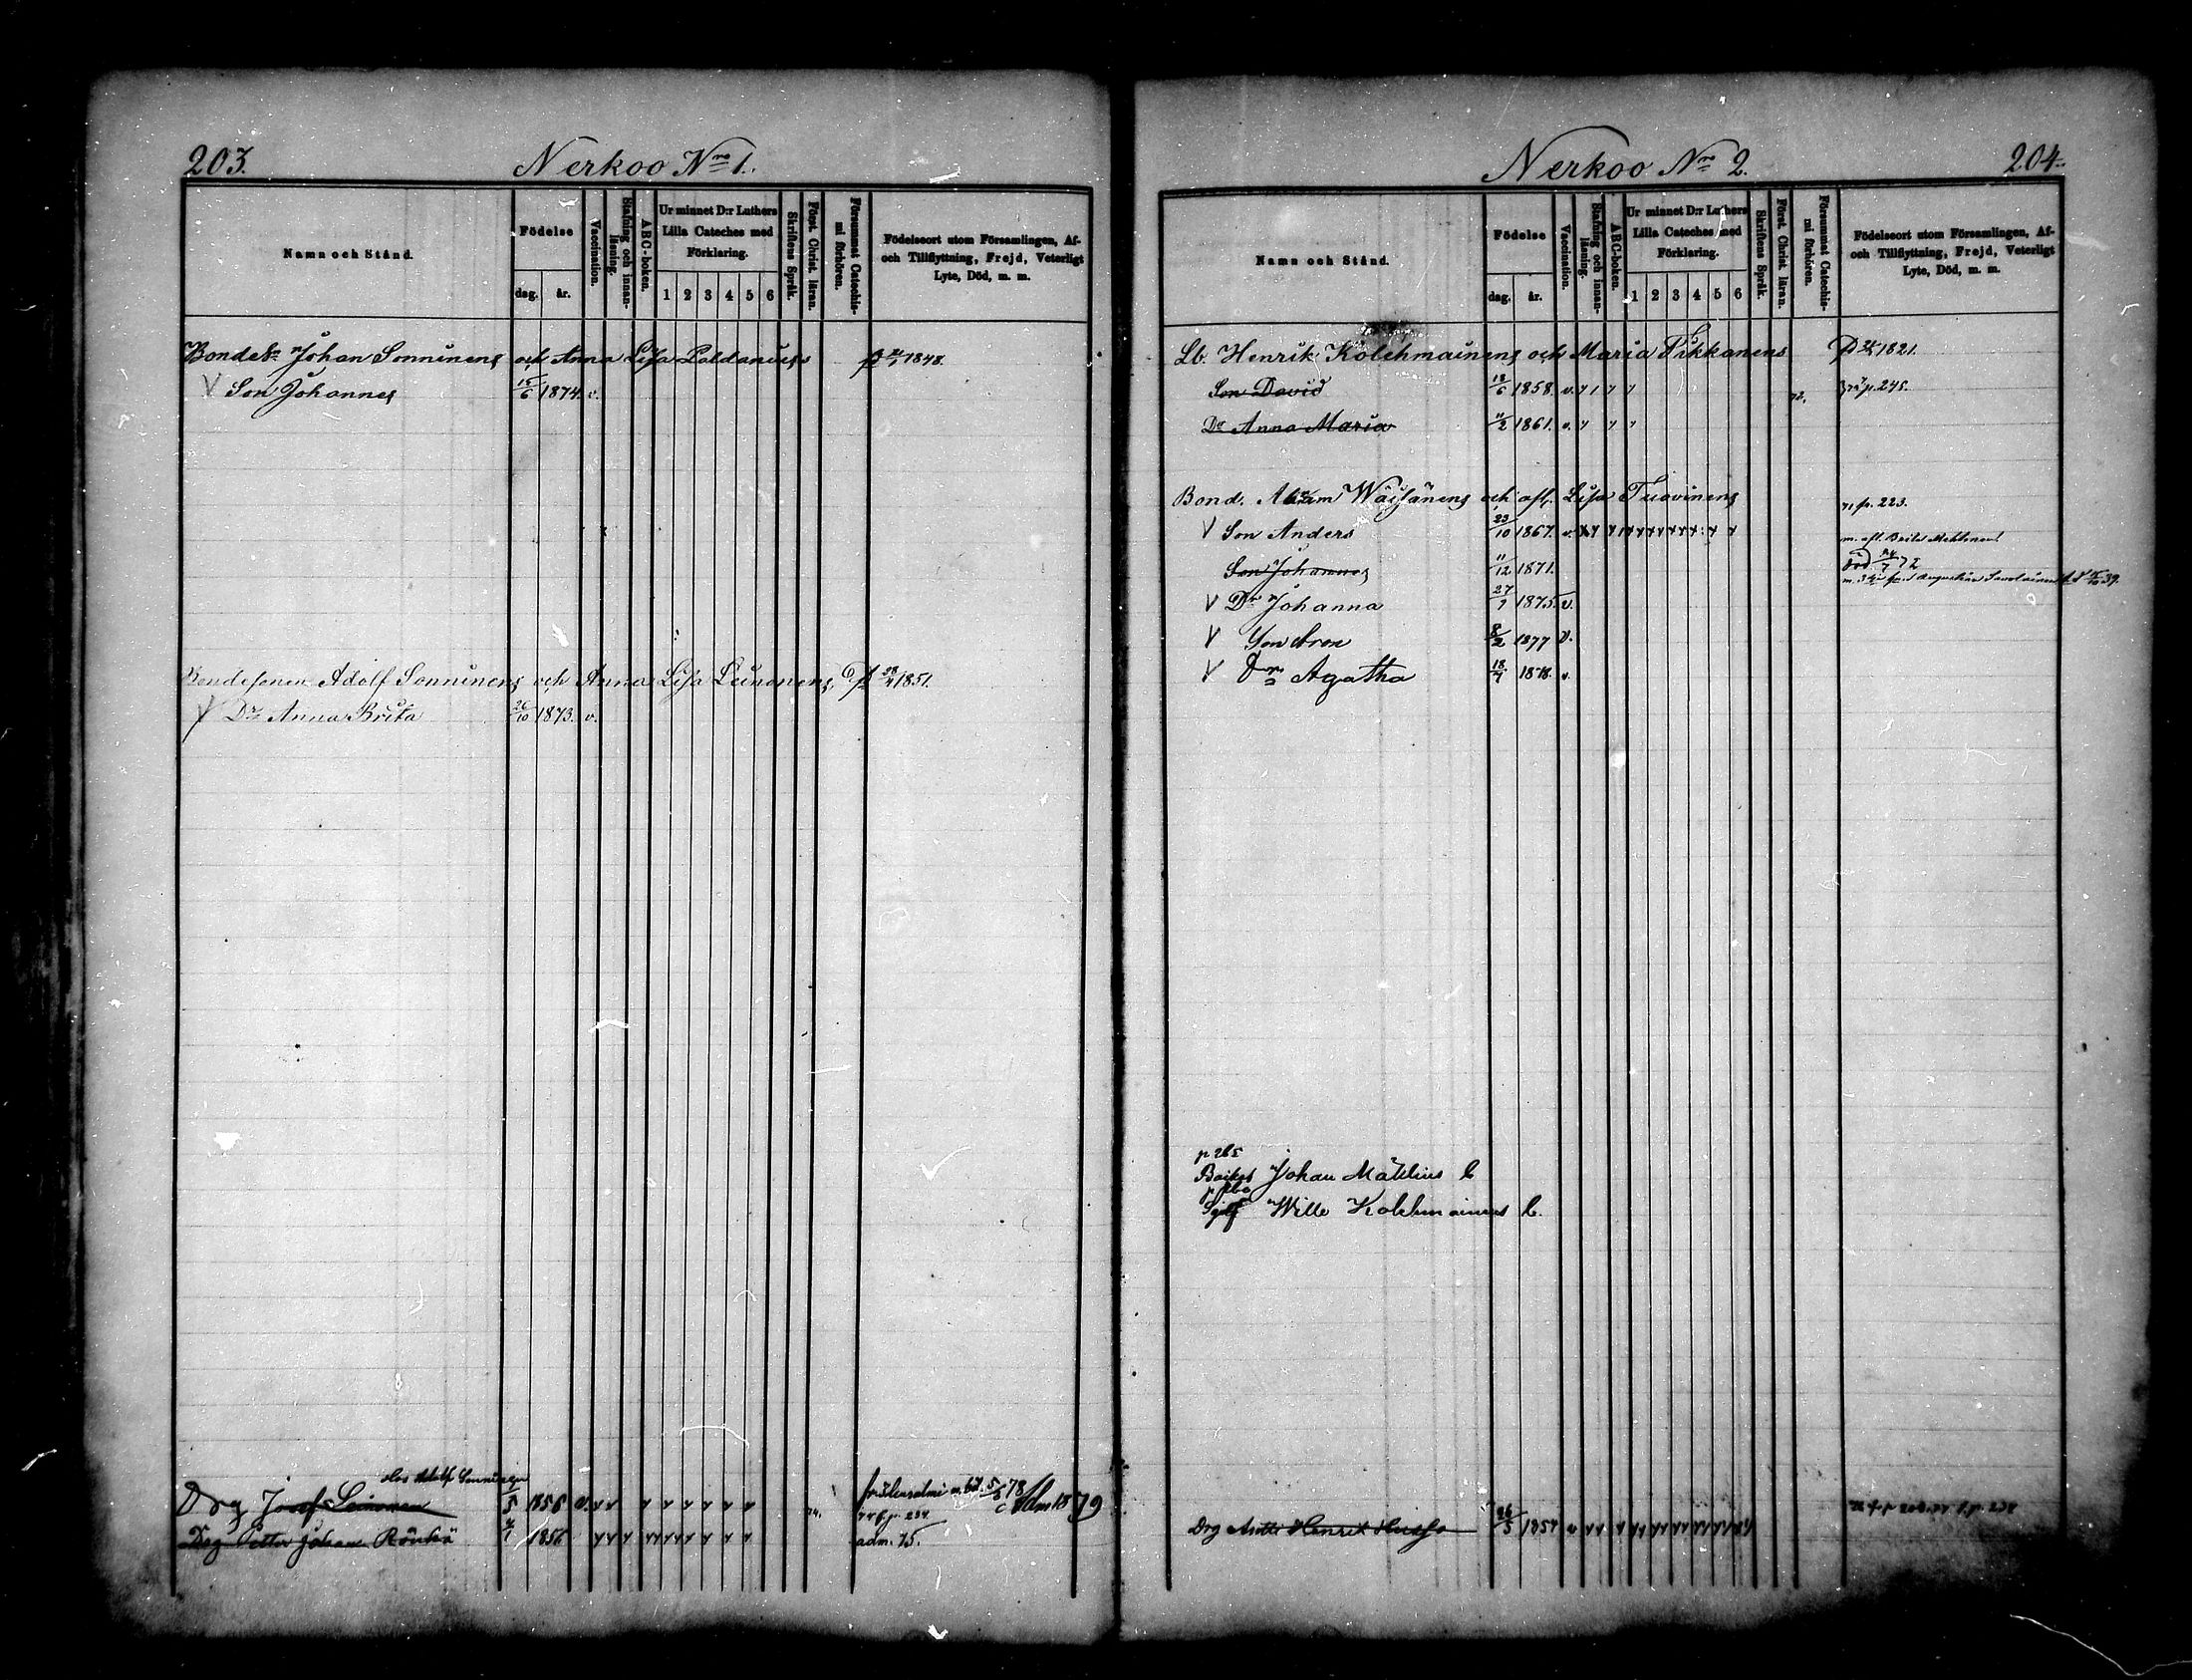 203.
Nerkoo Nro 1.
Namn och Stånd.
Födelse
dag. år.
Vaccination.
Stafning och innanläsning.
ABC-boken.
Ur minnet D:r Luthers Lilla Cateches med Förklaring.
1 2 3 4 5 6
Skriftens Språk.
Först. Christ. läran.
Försummat Catechismi förhören.
Födelseort utom Församlingen, Af- och Tillflyttning, Frejd, Veterligt Lyte, Död, m. m.
Johan Sonninens och Anna Lisa Paldanius 1848.
V Son Johannes 15/6 1874. v.
Bondesonen Adolf Sonninens och Anna Lisa Leinonens 1851.
V Dr Anna Brita 26/10 1873. v.
hos Adolf Sonninen
Drg Josef Leinonen 1/5 1856 v. 74. 5/5 78 Adm 1879
Drg Petter Johan 1856. adm. 75.
Nerkoo No 2.
204.
Namn och Stånd.
Födelse
dag. år.
Vaccination.
Stafning och innanläsning.
ABC-boken.
Ur minnet D:r Luthers Lilla Cateches med Förklaring.
1 2 3 4 5 6
Skriftens Språk.
Först. Christ. läran.
Försummat Catechismi förhören.
Födelseort utom Församlingen, Af- och Tillflyttning, Frejd, Veterligt Lyte, Död, m. m.
Lb. Henrik Kolehmainens och Maria Pikkanens 1821.
Son David 18/6 1858. v. 72. p. 245.
Dr Anna Maria 11/2 1861. v.
Bond. Abram Wäisänens och afl. Lisa Tuovinens p. 223.
V Son Anders 23/10 1867. v.
Son Johannes 11/12 1871. död 24/7 72
V Dr Johanna 27/7 1875. v.
V Son Aron 8/2 1877 v.
V Dr Agatha 18/7 1878. v.
p 265
Johan
Wille Kolehmainen
Drg Antti Henrik 26/5 1854